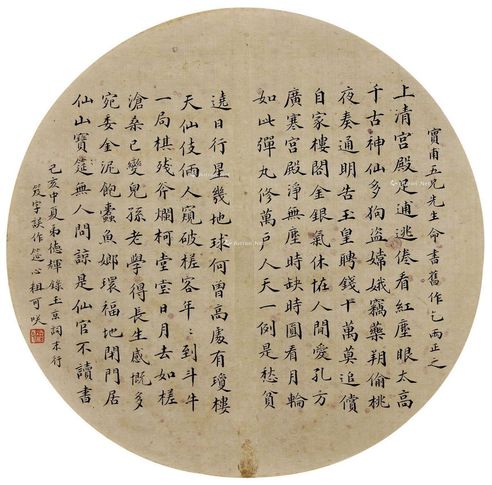 寶甫五兄先生命書舊作乞兩正之
上清宮殿足逋逃倦看紅塵眼太高
千古神仙多狗盜嫦娥竊藥朔偷桃
夜奏通明告玉皇聘錢十萬莫追償
自家樓閣金銀氣休怪人間愛孔方
廣寒宮殿淨無塵時缺時圓看月輪
如此彈丸修萬戶人天一例是愁貧
遶日行星幾地球何曾高處有瓊樓
天仙伎倆人窺破槎客年〻到斗牛
一局棋殘斧爛柯堂堂日月去如梭
滄桑已變兒孫老學得長生感慨多
宛委金泥飽蠹魚嫏嬛福地閉門居
仙山寶筵無人問諒是仙官不讀書
己亥中夏弟德輝錄玉京詞末行
笈字誤作筵心粗可咲